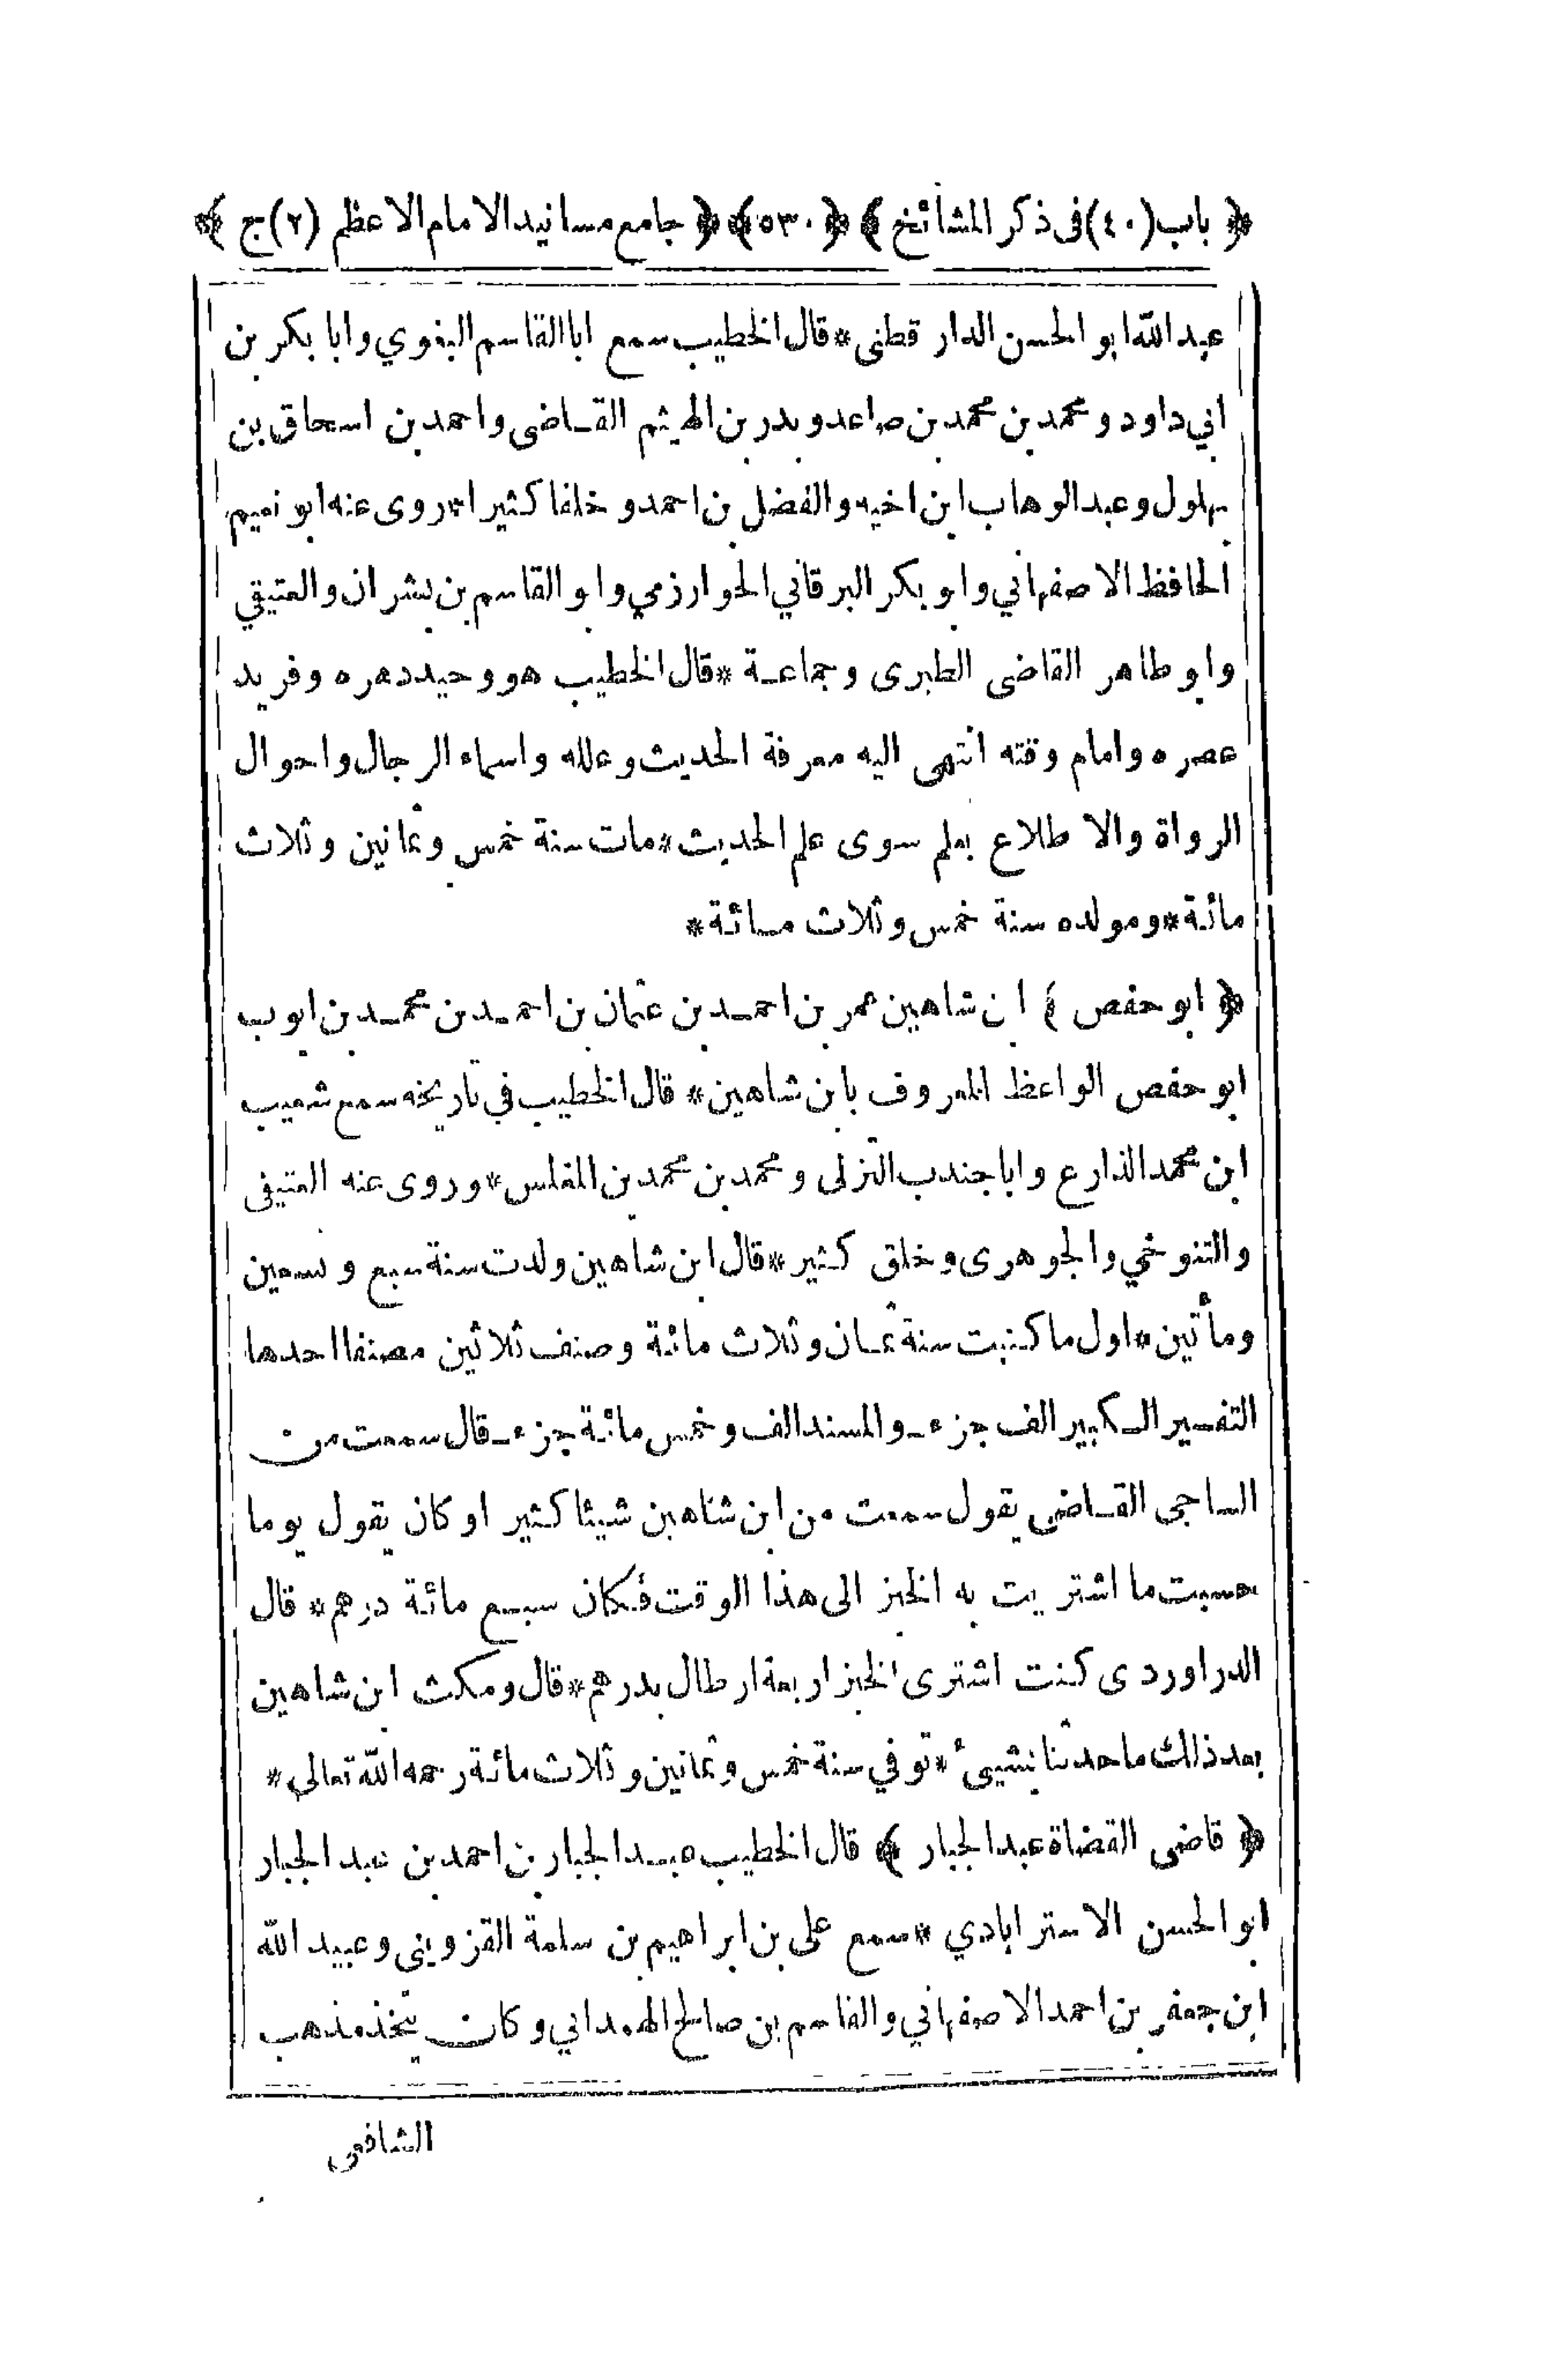 ﴿ باب (٤٠) فى ذكر المشائخ ﴾ ﴿ ٥٣٠ ﴾ ﴿ جامع مسانيد الامام الاعظم (٢) ج ﴾
عبد الله ابو الحسن الدار قطنى * قال الخطيب سمع ابا القاسم البغوي وابا بكر بن
ابي داود ومحمد بن محمد بن صاعد وبدر بن الهيثم القاضى واحمد بن اسحاق بن
بهلول وعبد الوهاب ابن اخيه والفضل بن احمد وخلقا كثيرا * روى عنه ابو نعيم
الحافظ الاصفهاني وابو بكر البرقاني الخوارزمي وابو القاسم بن بشران والعتيقي
وابو طاهر القاضى الطبرى وجماعة * قال الخطيب هو وحيد دهره وفريد
عصره وامام وقته انتهى اليه معرفة الحديث وعلله واسماء الرجال واحوال
الرواة والاطلاع بعلم سوى علم الحديث * مات سنة خمس وثمانين وثلاث
مائة * ومولده سنة خمس وثلاث مائة *
﴿ ابو حفص ﴾ ابن شاهين عمر بن احمد بن عثمان بن احمد بن محمد بن ايوب
ابو حفص الواعظ المعروف بابن شاهين * قال الخطيب في تاريخه سمع شعيب
ابن محمد الذارع وابا جندب النزلى ومحمد بن محمد بن المغلس * وروى عنه العتيقى
والتنوخي والجوهرى وخلق كثير * قال ابن شاهين ولدت سنة سبع وتسعين
ومأتين * اول ما كتبت سنة ثمان وثلاث مائة وصنف ثلاثين مصنفا احدها
التفسير الكبير الف جزء ـ والمسند الف وخمس مائة جزء ـ قال سمعت من
الساجى القاضى يقول سمعت من ابن شاهين شيئا كثير ا وكان يقول يوما
حسبت ما اشتريت به الخبز الى هذا الوقت فكان سبع مائة درهم * قال
الدراوردى كنت اشترى الخبز اربعة ارطال بدرهم * قال ومكث ابن شاهين
بعد ذلك ما حدثنا بشيئ * توفي سنة خمس وثمانين وثلاث مائة رحمه الله تعالى *
﴿ قاضى القضاة عبد الجبار ﴾ قال الخطيب عبد الجبار بن احمد بن عبد الجبار
ابو الحسن الاسترابادي * سمع على بن ابراهيم بن سلمة القزوينى وعبيد الله
ابن جعفر بن احمد الاصفهاني والقاسم بن صالح الهمداني وكان يتخذ مذهب
الشافعى